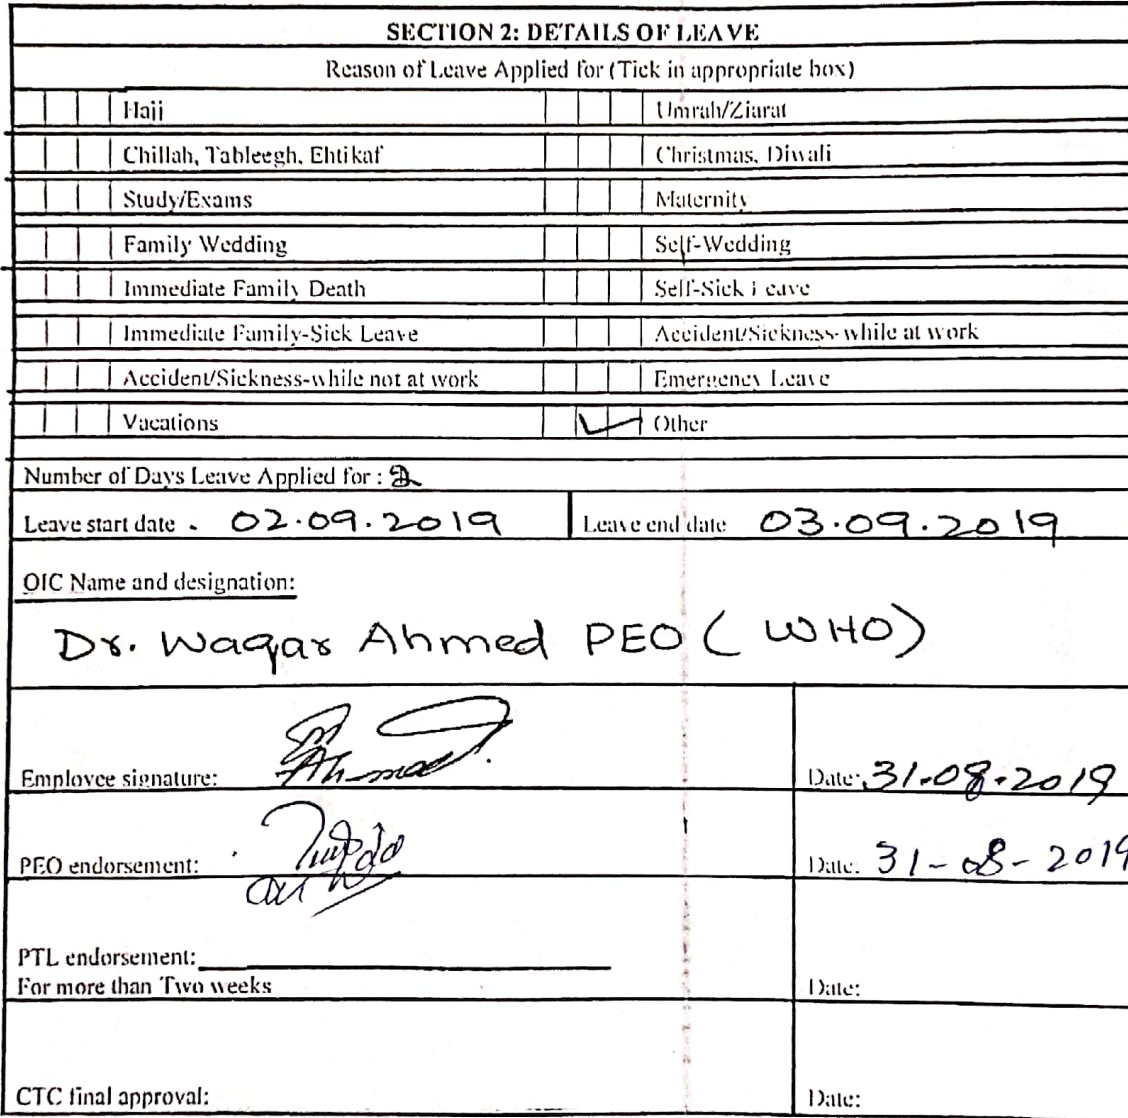 SECTION 2: DETAILS OF LEAVE
Reason of Leave Applied for (Tick in appropriate box)
Hajj Umrah/Ziarat
Chillah, Tableegh, Ehtikaf Christmas, Diwali
Study/Exams Maternity
Family Wedding Self-Wedding
Immediate Family Death Self-Sick Leave
Immediate Family-Sick Leave Accident/Sickness-while at work
Accident/Sickness-while not at work Emergency Leave
Vacations Other
Number of Days Leave Applied for : 2
Leave start date 02.09.2019 Leave end date 03.09.2019
OIC Name and designation:
Dr. Waqar Ahmed PEO (WHO)
Employee signature: Ahmad Date: 31.08.2019
PEO endorsement: Date: 31-08-2019
PTL endorsement:
For more than Two weeks Date:
CTC final approval: Date: